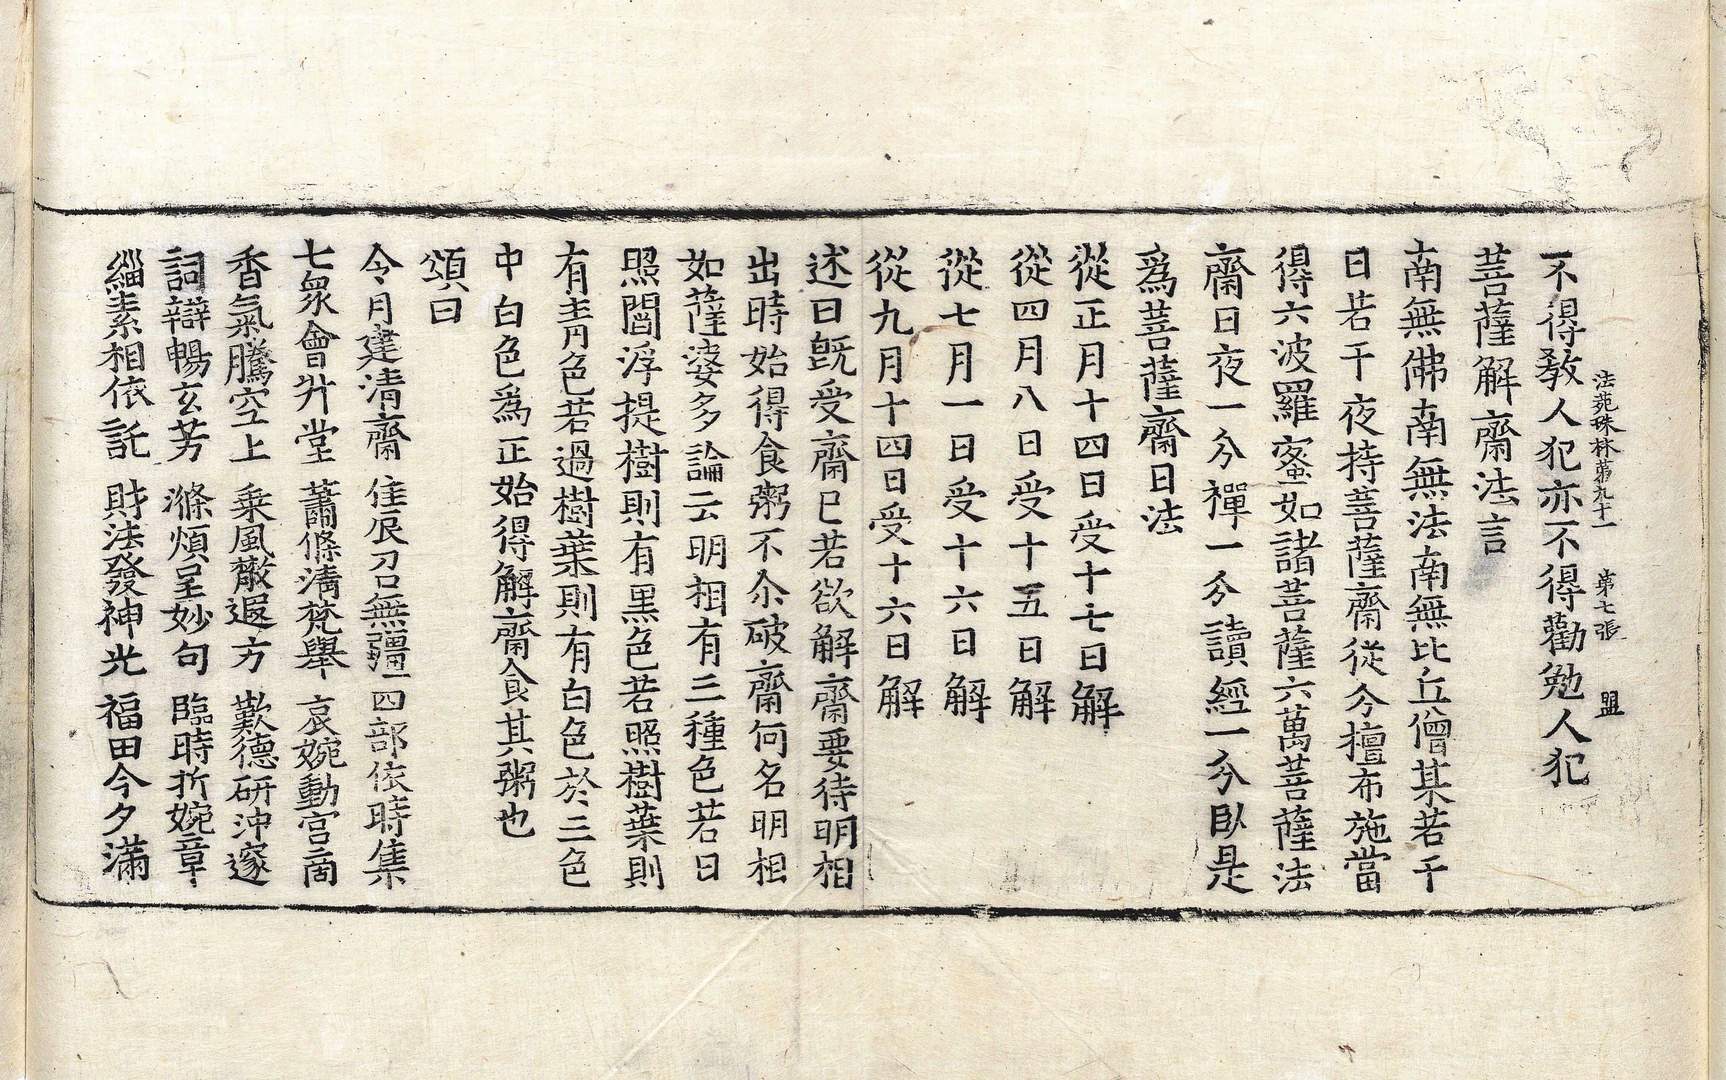 法苑珠林第九十一　第七張　盟
不得教人犯亦不得勸勉人犯
菩薩解齋法言
南無佛南無法南無比丘僧某若干
日若干夜持菩薩齋從今檀布施當
得六波羅蜜如諸菩薩六萬菩薩法
齋日夜一分禪一分讀經一分臥是
爲菩薩齋日法
從正月十四日受十七日解
從四月八日受十五日解
從七月一日受十六日解
從九月十四日受十六日解
述曰旣受齋已若欲解齋要待明相
出時始得食粥不尒破齋何名明相
如薩婆多論云明相有三種色若日
照閻浮提樹則有黑色若照樹葉則
有青色若過樹葉則有白色於三色
中白色爲正始得解齋食其粥也
頌曰
令月建清齋　佳辰召無疆　四部依時集
七衆會升堂　蕭條清梵舉　哀婉動宮商
香氣騰空上　乘風散遐方　歎德研沖邃
詞辯暢玄芳　滌煩呈妙句　臨時折婉章
緇素相依託　財法發神光　福田今夕滿